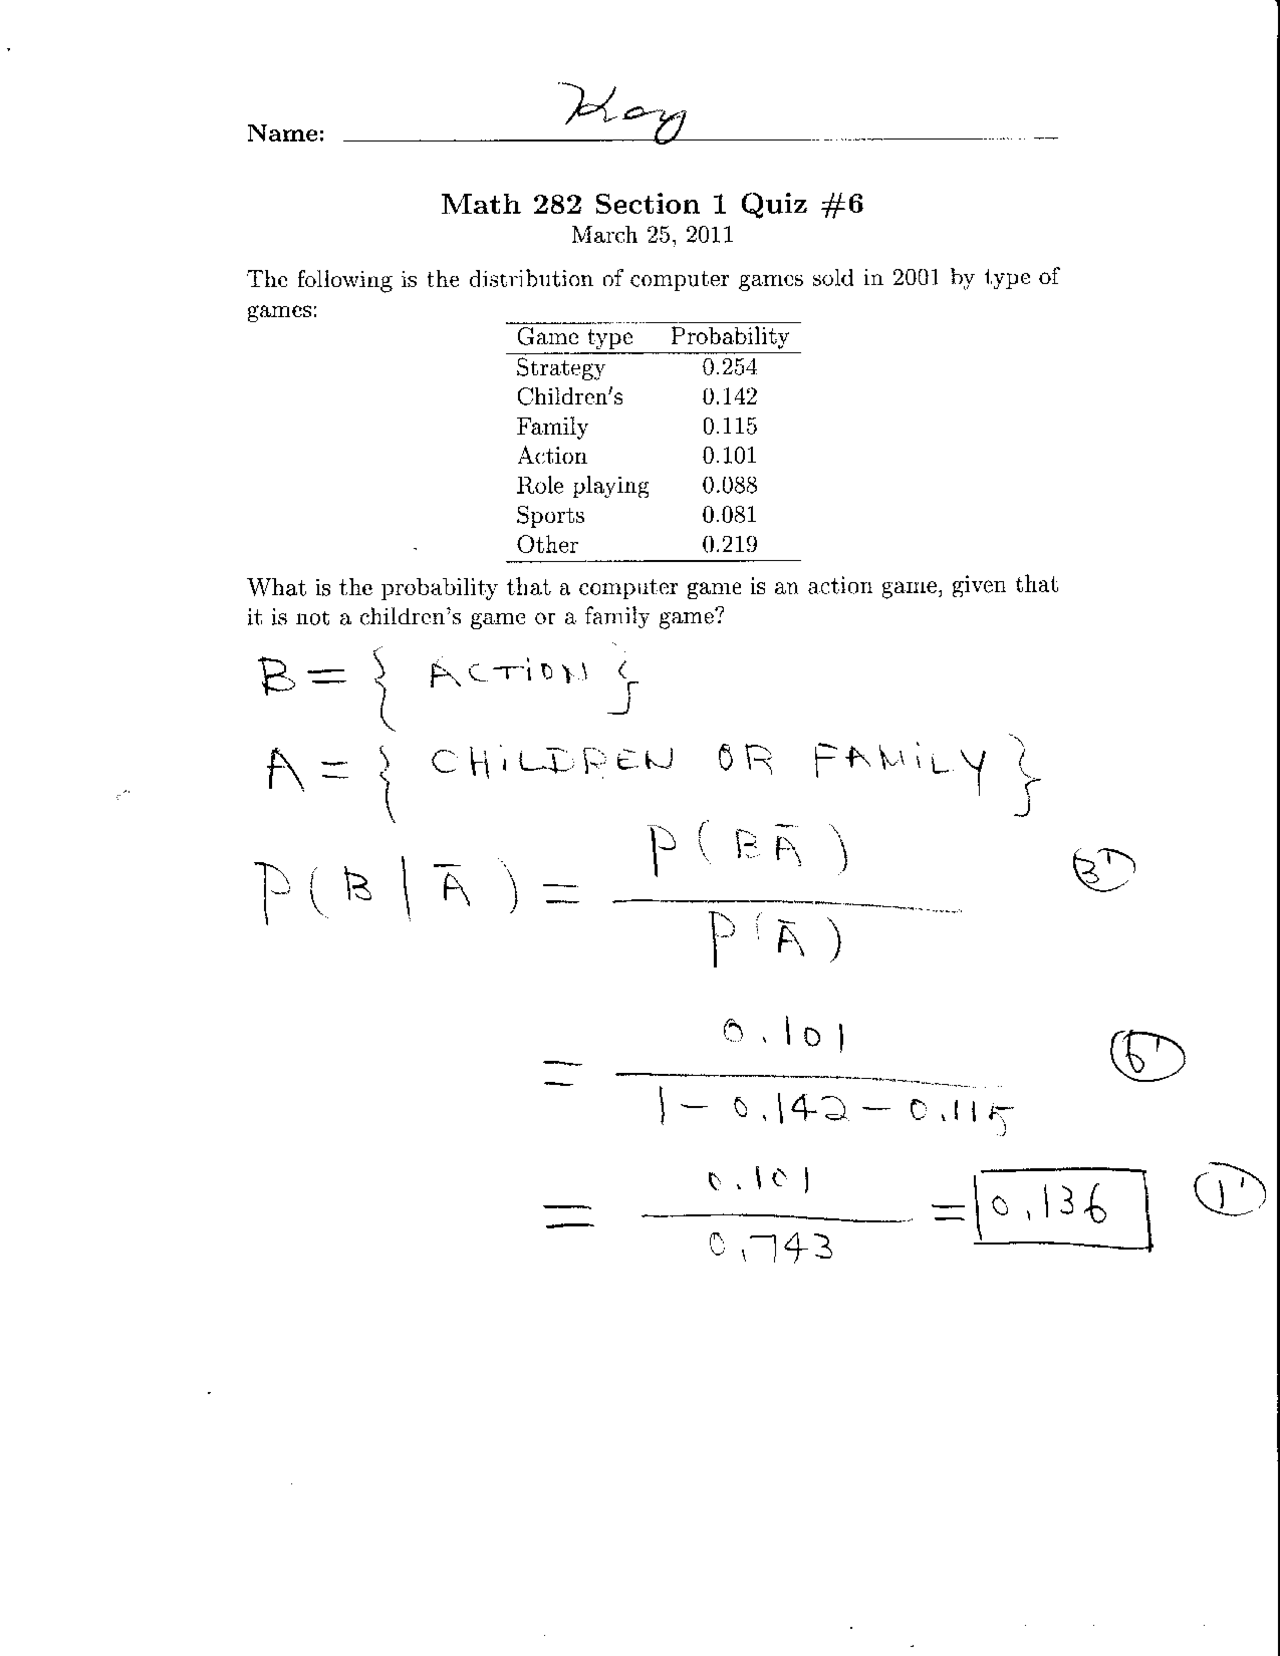 Name: Key
Math 282 Section 1 Quiz #6
March 25, 2011
The following is the distribution of computer games sold in 2001 by type of
games:
Game type Probability
Strategy 0.254
Children's 0.142
Family 0.115
Action 0.101
Role playing 0.088
Sports 0.081
Other 0.219
What is the probability that a computer game is an action game, given that
it is not a children's game or a family game?
B = { ACTION }
A = { CHILDREN OR FAMILY }
P(BĀ)
P(B|Ā) = 3'
P(Ā)
0.101
= 6'
1 - 0.142 - 0.115
0.101
= = 0.136 1'
0.743